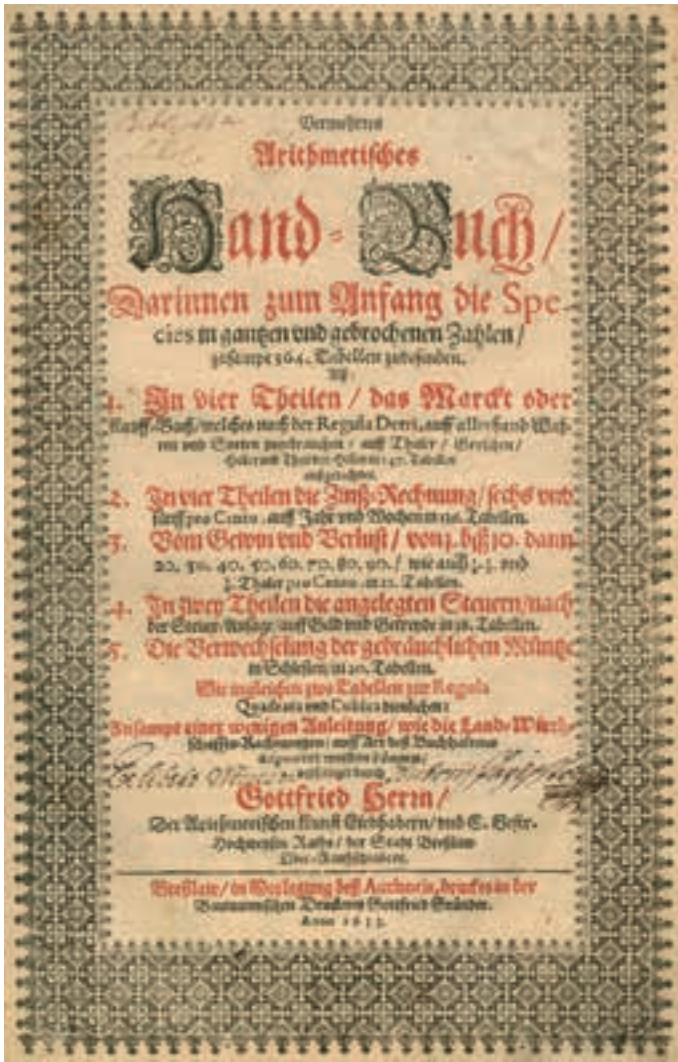 Vermehrtes
Arithmetisches
Hand-Buch/
Darinnen zum Anfang die Spe-
cies in gantzen vnd gebrochenen Zahlen/
zusampt 364. Tabellen zubefinden.
Als:
1. In vier Theilen / das Marckt oder
Kauff-Buch/welches nach der Regula Detri, auff allerhand Wah-
ren vnd Sorten zugebrauchen / auff Thaler / Groschen/
Heller vnd Tabellen
2. In vier Theilen die Zinß-Rechnung/sechs vnd
fünff pro Cento, auff Jahr vnd Wochen in Tabellen.
3. Vom Gewin vnd Verlust / von biß 10. dann
20. 30. 40. 50. 60. 70. 80. 90. / wie auch vnd
Thaler pro Cento in Tabellen.
4. In zwey Theilen die angelegten Steuern/nach
der Steuer-Ansage/auff Geld vnd Getreyde in Tabellen.
5. Die Verwechselung der gebräuchlichen Müntze
in Schlesien/in 20. Tabellen.
Wie ingleichen zwo Tabellen zur Regula
Quadrata vnd Cubica dienlichen:
Zusampt einer wenigen Anleitung/ wie die Land-Würth-
schaffts-Rechnungen/ auff Art deß Buchhaltens
werden können/
durch
Gottfried Herm/
Der Arithmetischen Kunst Liebhabern/vnd E. Gestr.
Hochweisen Raths/ der Stadt Breßlaw
Breßlaw/ in Verlegung deß Authoris, druckts in der
Baumannischen Druckerey Gottfried Gründer.
Anno